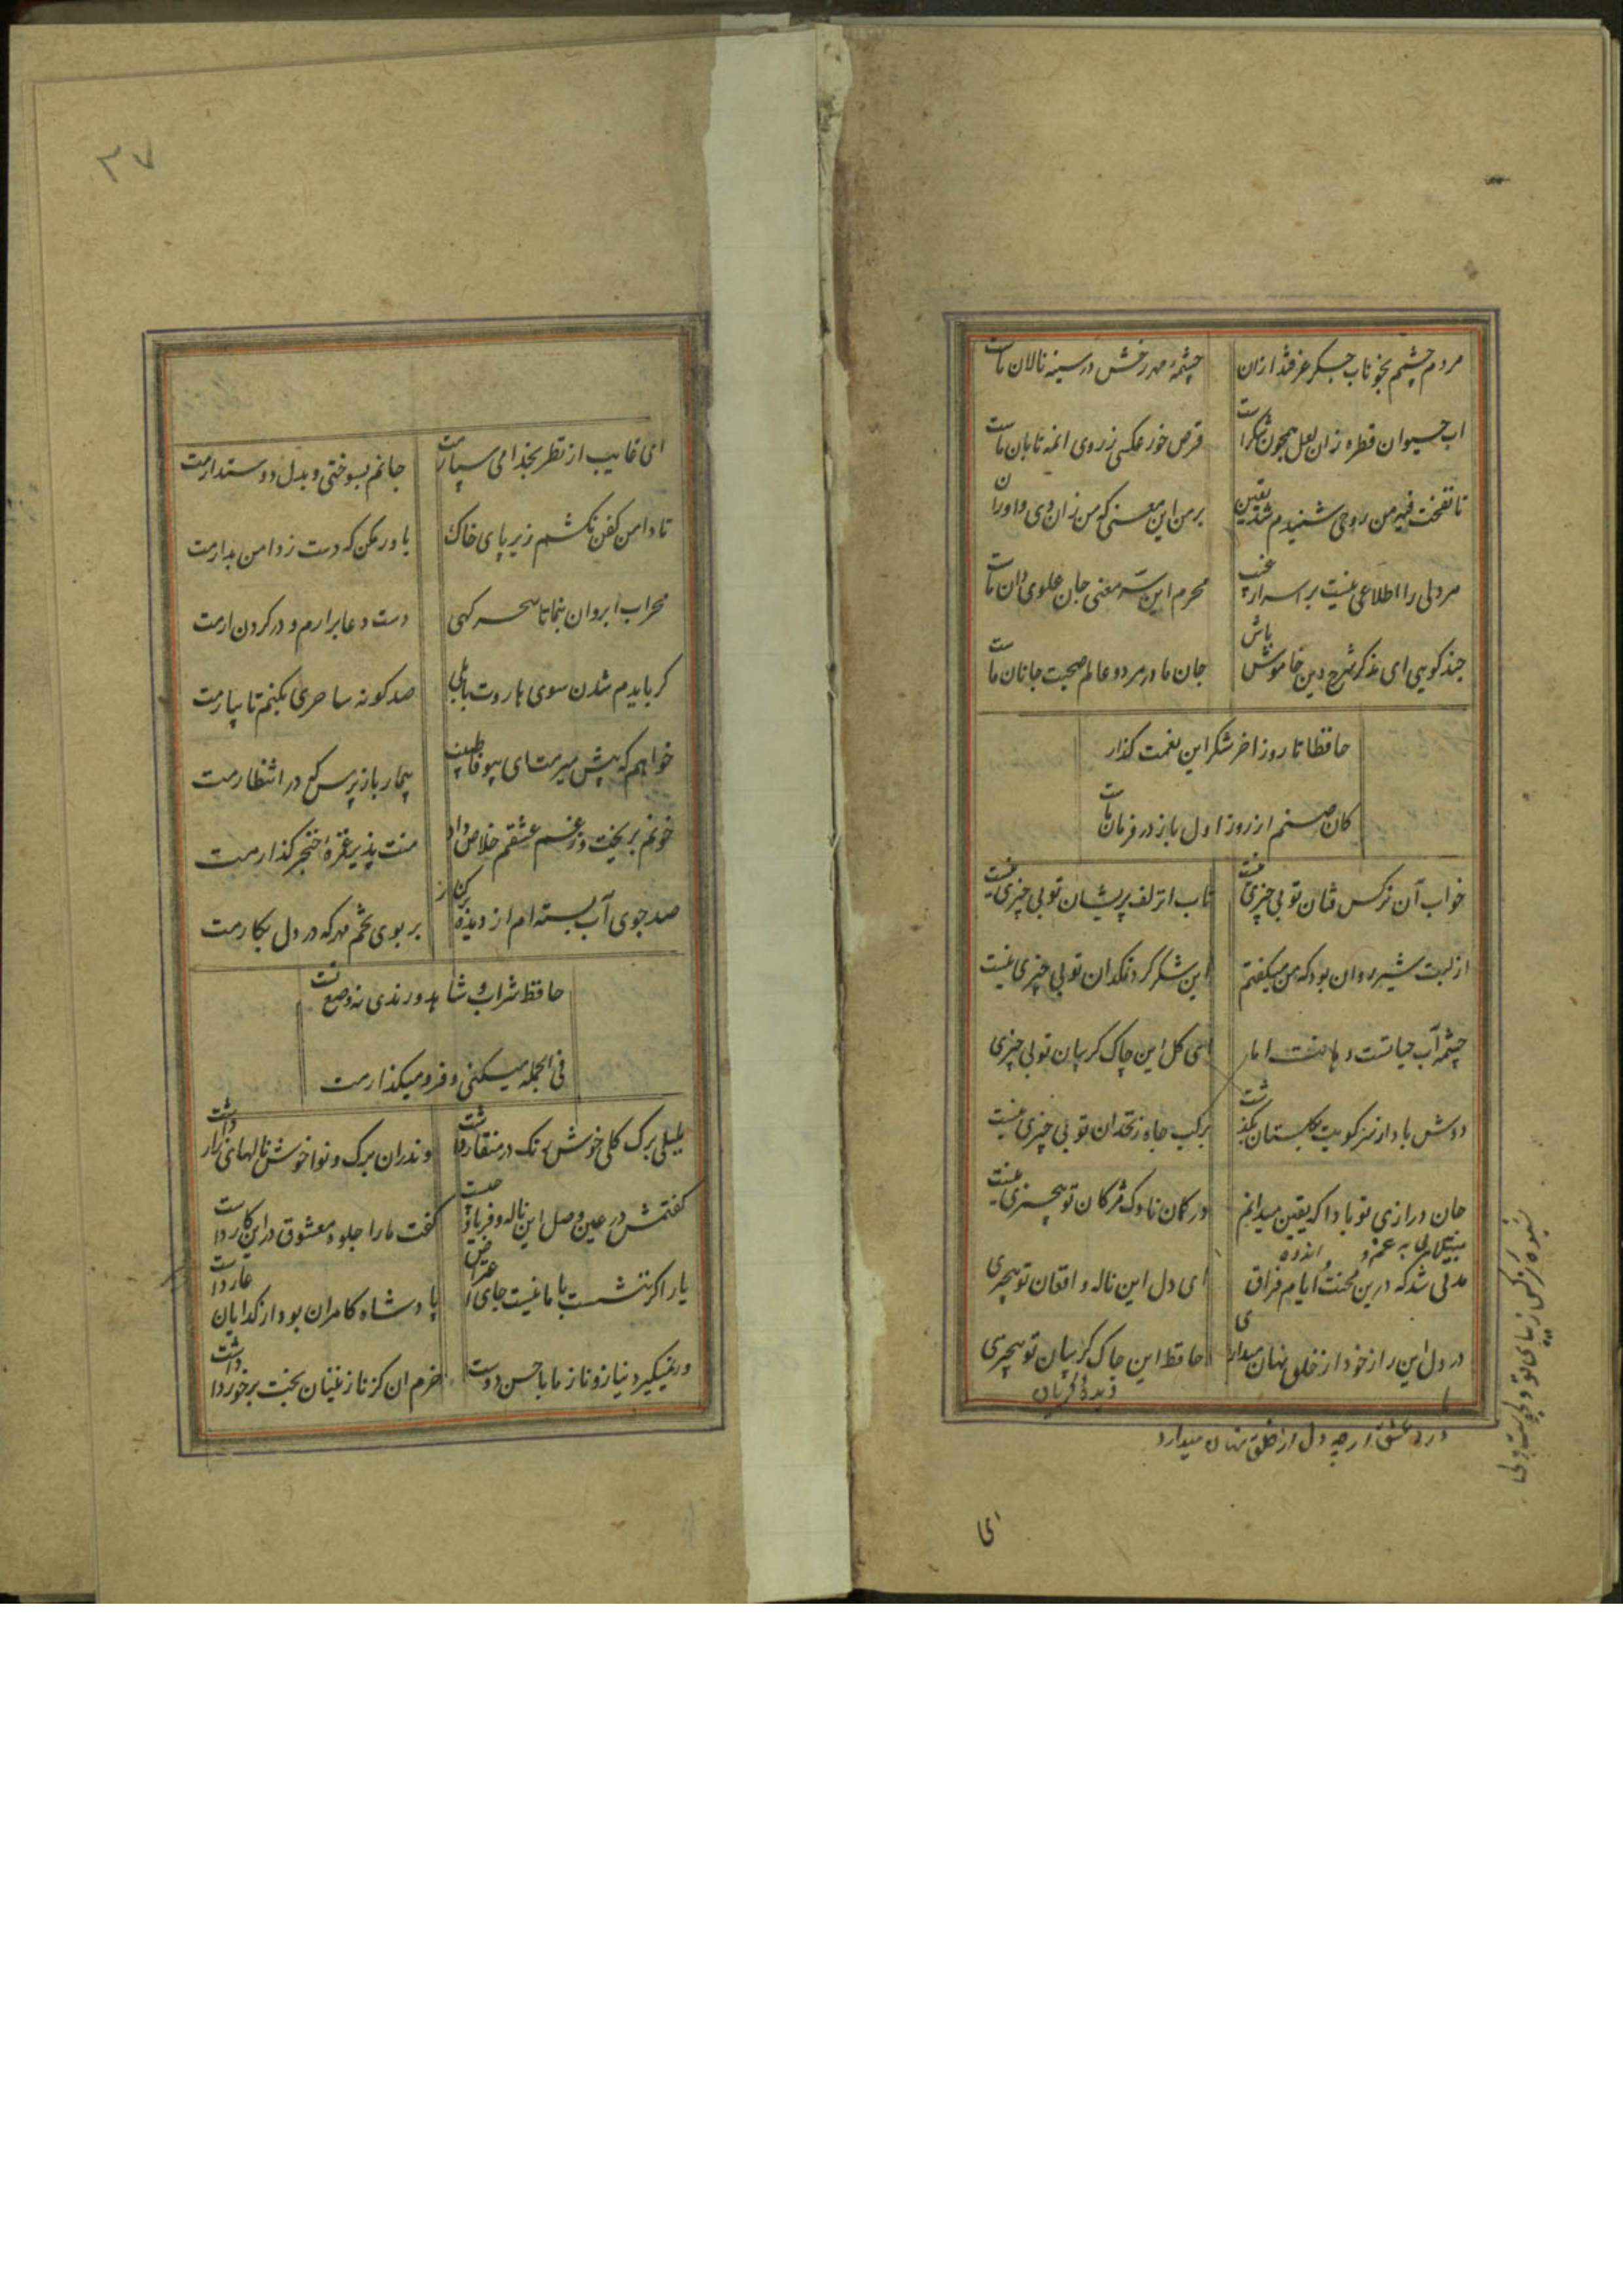 مردم چشم بخوناب جگر غرقند ازان
چشمهٔ مهر رخش در سینه نالان ماست
اب حیوان قطره زان لعل همچون شکر است
قرص خور عکسی ز روی انمه تابان ماست
تا نفخت فیه من روحی شنیدم شد یقین
بر من این معنی که من زان وی و او زان
هر دلی را اطلاعی نیست بر اسرار غیب
محرم این سر معنی جان علوی دان ماست
چند کویی ای مذکر شرح دین خاموش باش
جان ما در هر دو عالم صحبت جانان ماست
حافظا تا روز اخر شکر این نعمت کذار
کان صنم از روز اول باز در فرمان ماست
خواب آن نرکس فتان تو بی چیزی نیست
تاب انزلف پریشان تو بی چیزی نیست
از لبت شیر روان بود که من میکفتم
این شکر کرد نمکدان تو بی چیزی نیست
چشمه آب حیاتست دهانت اما
ای کل این چاک کریبان تو بی چیزی
دوش باد از سر کویت بکلستان بکذشت
بر لب چاه زنخدان تو بی چیزی نیست
جان درازی تو بادا که یقین میدانم
در کمان ناوک مژکان تو بیچیزی نیست
مبتلایی به غم و اندوه
مدتی شد که درین محنت و ایام فراق
ای دل این ناله و افغان تو بیچیزی
در دل این راز خود از خلق نهان میداری
حافظ این چاک کریبان تو بیچیزی
دیدهٔ کریان
درد عشق ار چه دل از خلق نهان میدارد
ای
۳۷
ای غایب از نظر بخدا می سپارمت
جانم بسوختی و بدل دوستدارمت
تا دامن کفن نکشم زیر پای خاک
باور مکن که دست ز دامن بدارمت
محراب ابروان بنما تا سحر کهی
دست دعا برارم و در کردن ارمت
کر بایدم شدن سوی هاروت بابلی
صد کونه ساحری بکنم تا بیارمت
خواهم که پیش میرمت ای بیوفا طبیب
بیمار باز پرس که در انتظارمت
خونم بریخت وز غم عشقم خلاص داد
منت پذیر غمزهٔ خنجر کذارمت
صد جوی آب بسته ام از دیده بر کنار
بر بوی تخم مهر که در دل بکارمت
حافظ شراب و شاهد و رندی نه وضع تست
فی الجمله میکنی و فرو میکذارمت
بلبلی برک کلی خوش رنک در منقار داشت
وندران برک و نوا خوش نالهای زار داشت
کفتمش در عین وصل این ناله و فریاد چیست
کفت ما را جلوه معشوق در این کار داشت
یار اکر ننشست با ما نیست جای اعتراض
پادشاه کامران بود از کدایان عار داشت
در نمیکیرد نیاز و ناز ما با حسن دوست
خرم ان کز نازنینان بخت برخوردار داشت